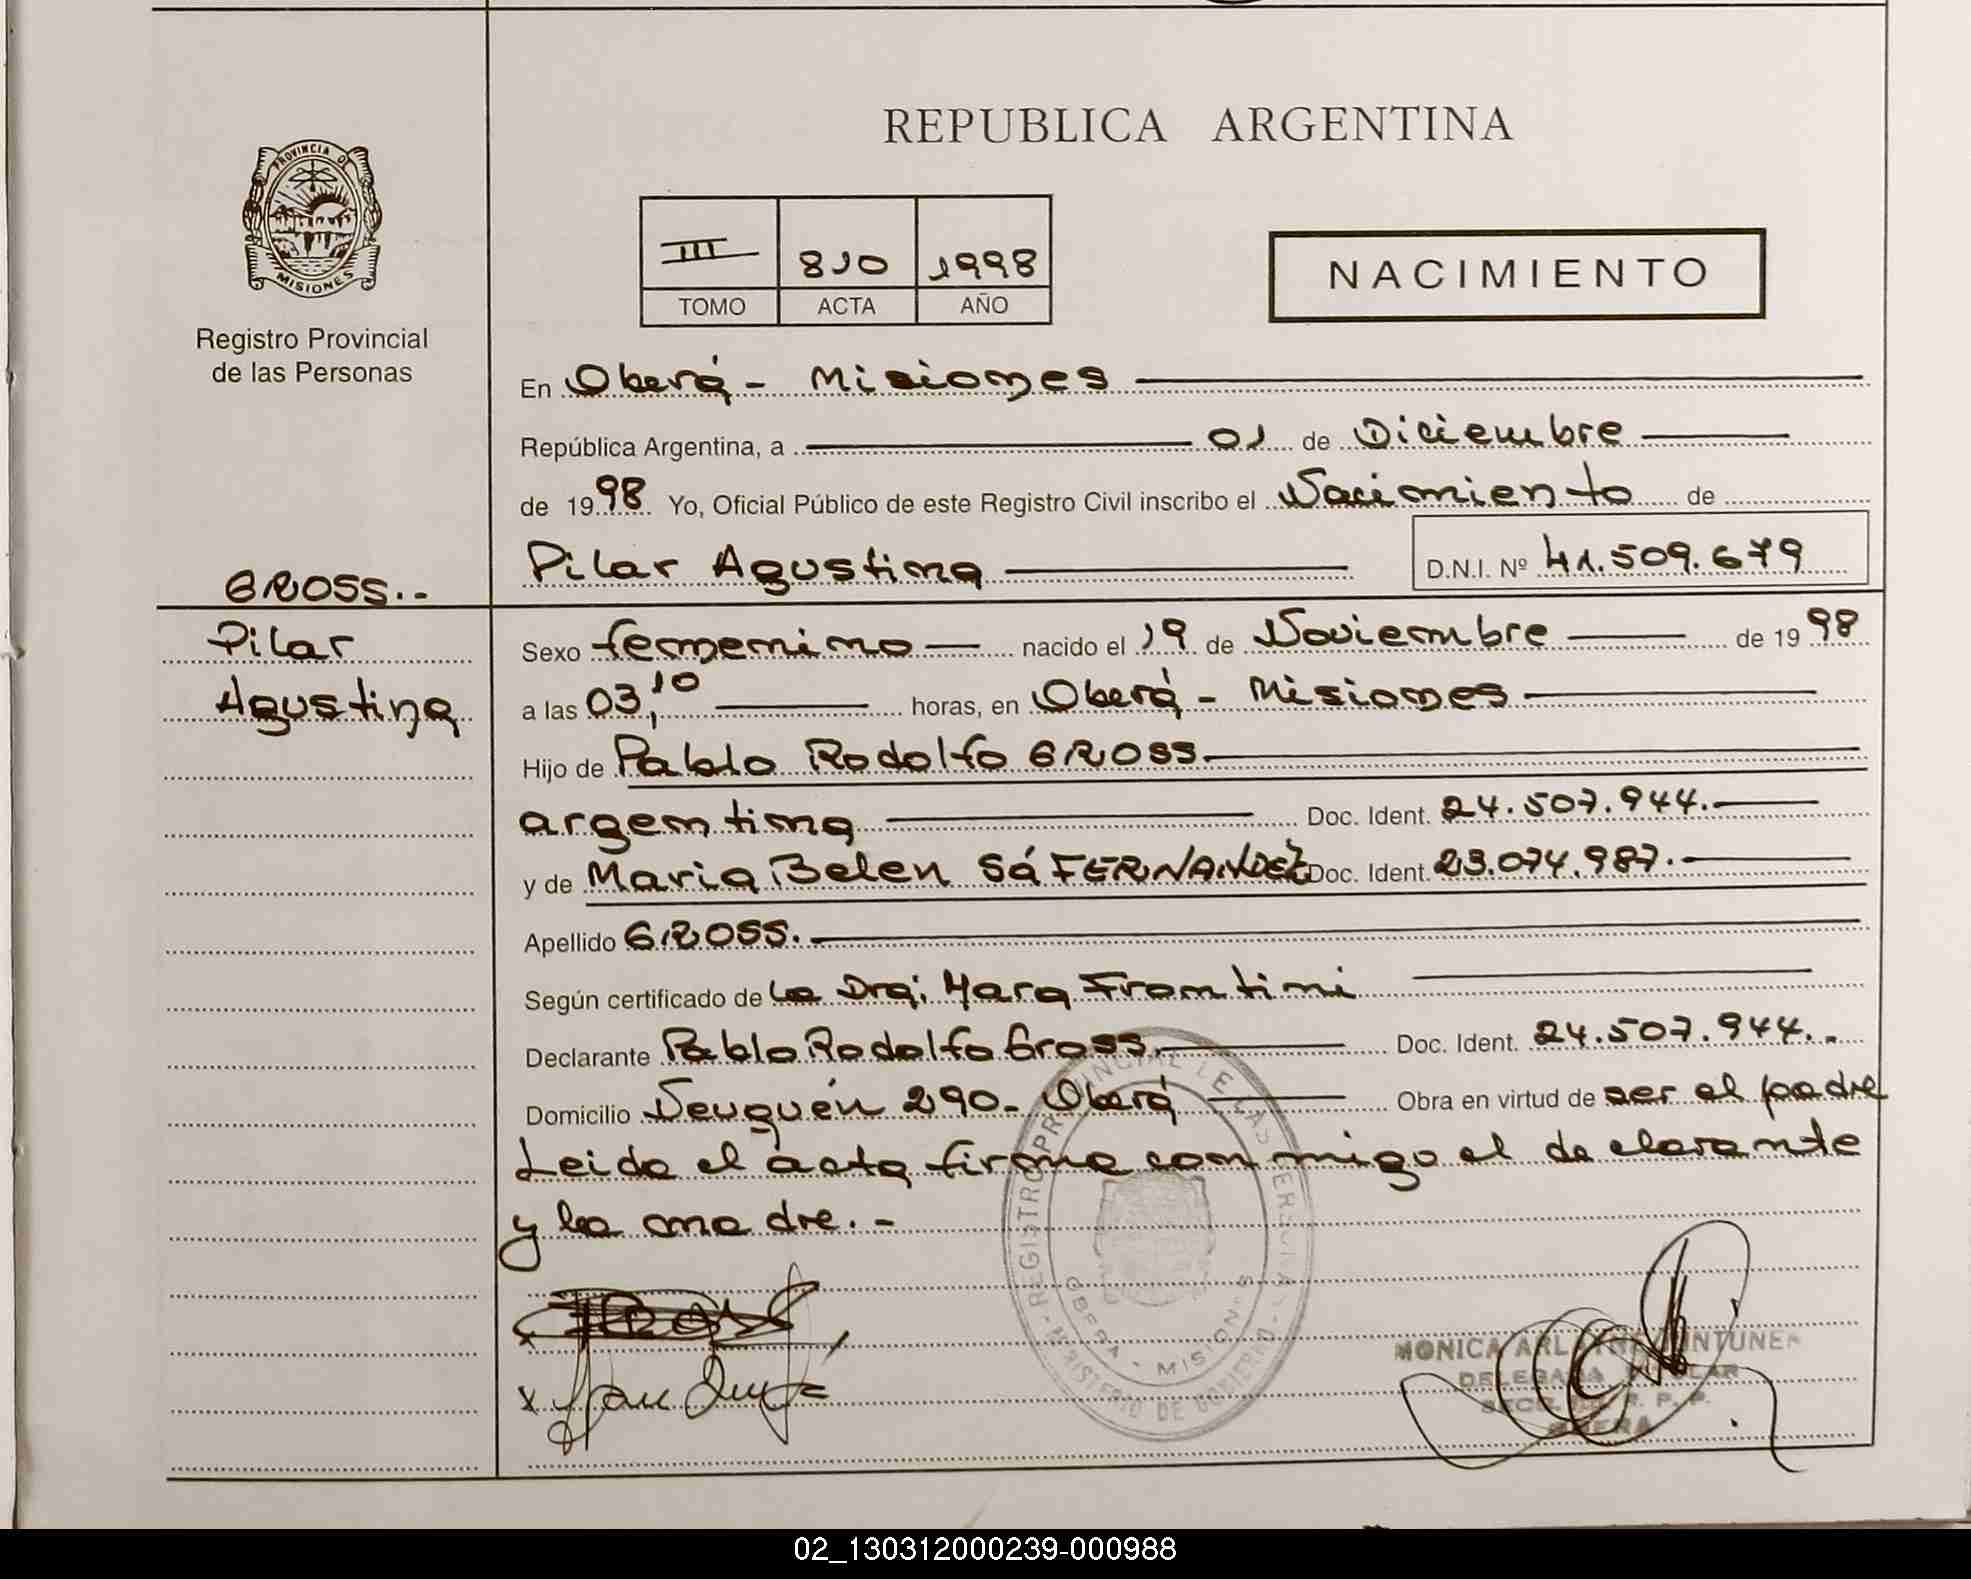 REPUBLICA ARGENTINA
PROVINCIA DE
MISIONES
Registro Provincial
de las Personas
III 810 1998
TOMO ACTA AÑO
NACIMIENTO
En Oberá - Misiones
República Argentina, a 01 de Diciembre
de 1998 Yo, Oficial Público de este Registro Civil inscribo el Nacimiento de
Pilar Agustina D.N.I. Nº 41.509.679
GROSS.-
Pilar
Agustina
Sexo femenino nacido el 19 de Noviembre de 1998
a las 03,10 horas, en Oberá - Misiones
Hijo de Pablo Rodolfo GROSS.
argentina Doc. Ident. 24.507.944.
y de Maria Belen Sá FERNANDEZ Doc. Ident. 23.074.987.-
Apellido GROSS.
Según certificado de la Dra; Mara Frontini
Declarante Pablo Rodolfo Gross. Doc. Ident. 24.507.944.-
Domicilio Neuquén 290- Oberá Obra en virtud de ser el padre
Leida el acta firma conmigo el declarante
y la madre.-
REGISTRO PROVINCIAL DE LAS PERSONAS - MINISTERIO DE GOBIERNO -
OBERA - MISIONES
MONICA
DELEGADA TITULAR
SECC. R. P. P.
OBERA
02_130312000239-000988